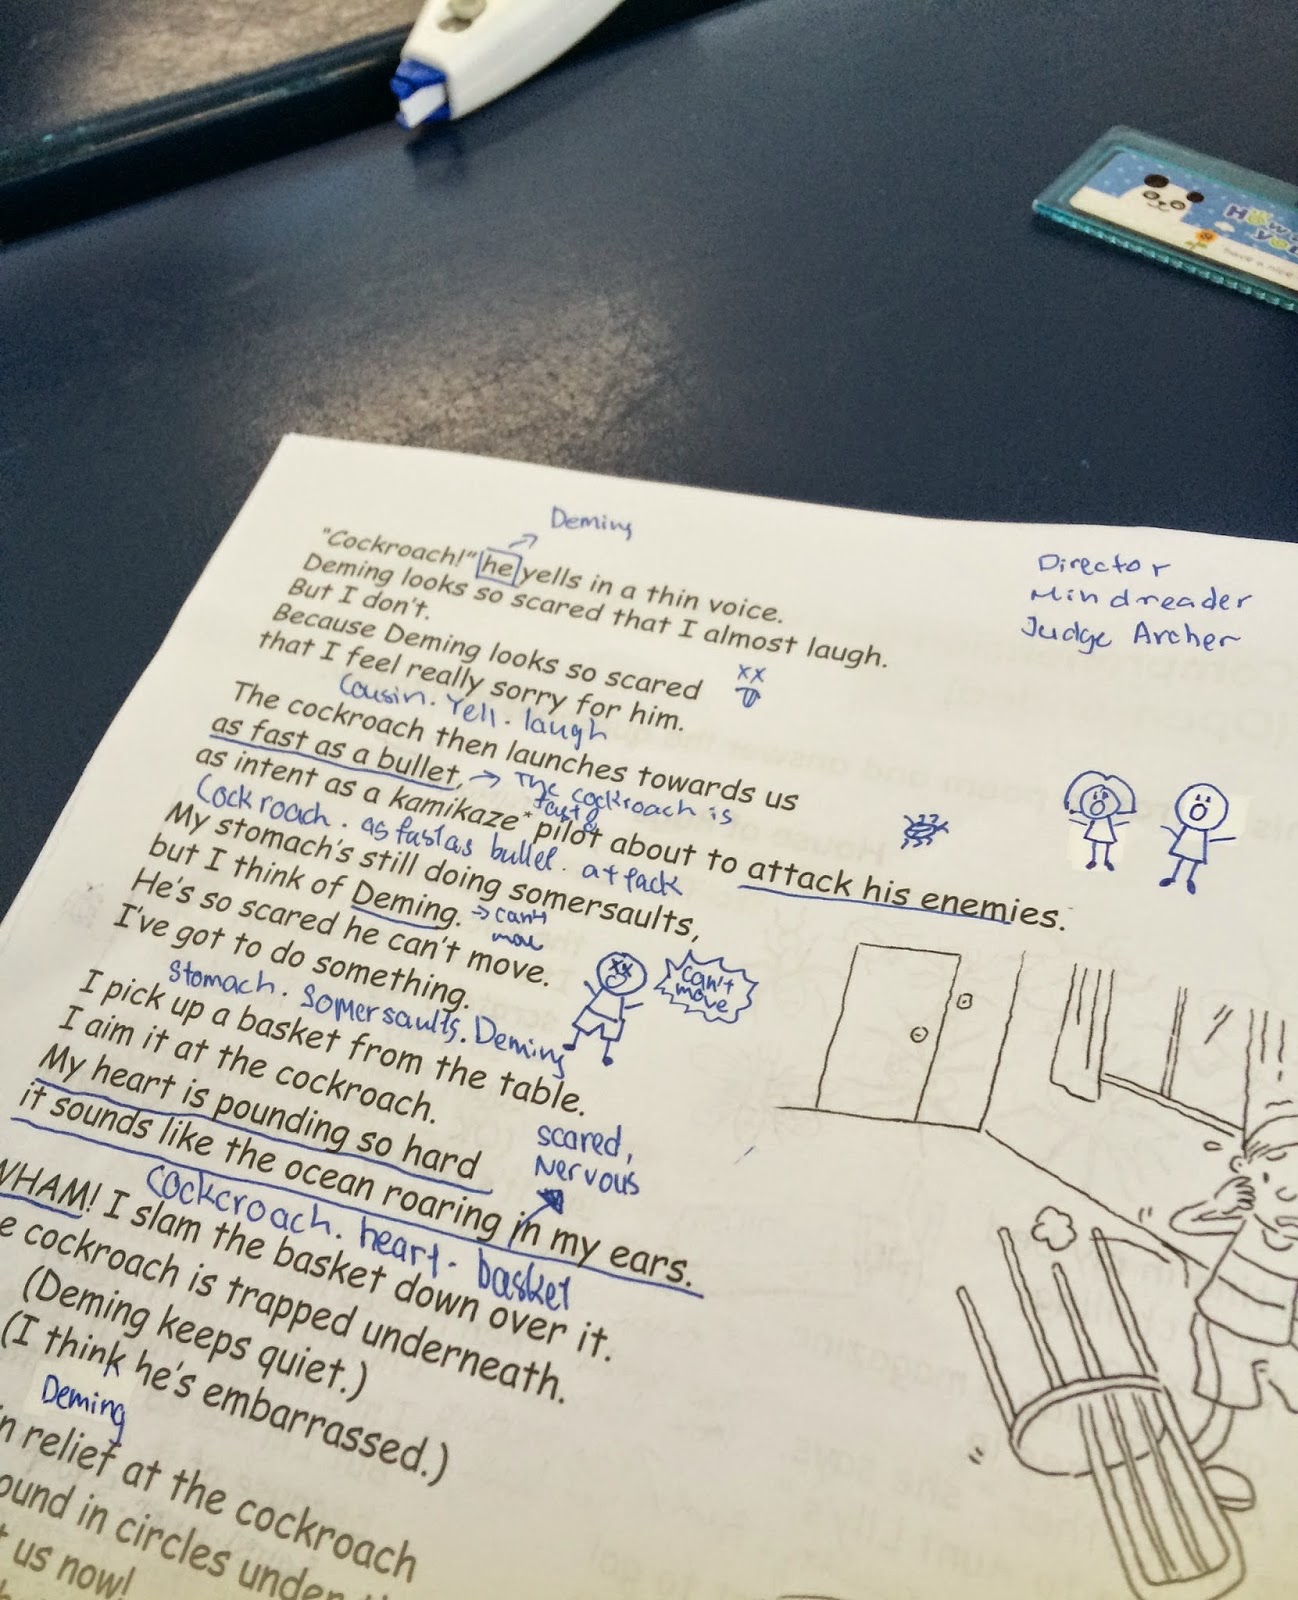 Deming
"Cockroach!" he yells in a thin voice.
Deming looks so scared that I almost laugh.
But I don't.
Because Deming looks so scared
that I feel really sorry for him.
Cousin. Yell. laugh
The cockroach then launches towards us
as fast as a bullet, → The cockroach is
fast &
as intent as a kamikaze* pilot about to attack his enemies.
Cockroach. as fast as bullet. attack
My stomach's still doing somersaults,
but I think of Deming. → can't
move
He's so scared he can't move.
I've got to do something.
Stomach. Somersaults. Deming
can't
move
I pick up a basket from the table.
I aim it at the cockroach.
My heart is pounding so hard
it sounds like the ocean roaring in my ears.
scared,
Nervous
Cockcroach. heart. basket
WHAM! I slam the basket down over it.
cockroach is trapped underneath.
(Deming keeps quiet.)
(I think he's embarrassed.)
Deming
relief at the cockroach
in circles under
us now!
Director
Mindreader
Judge Archer